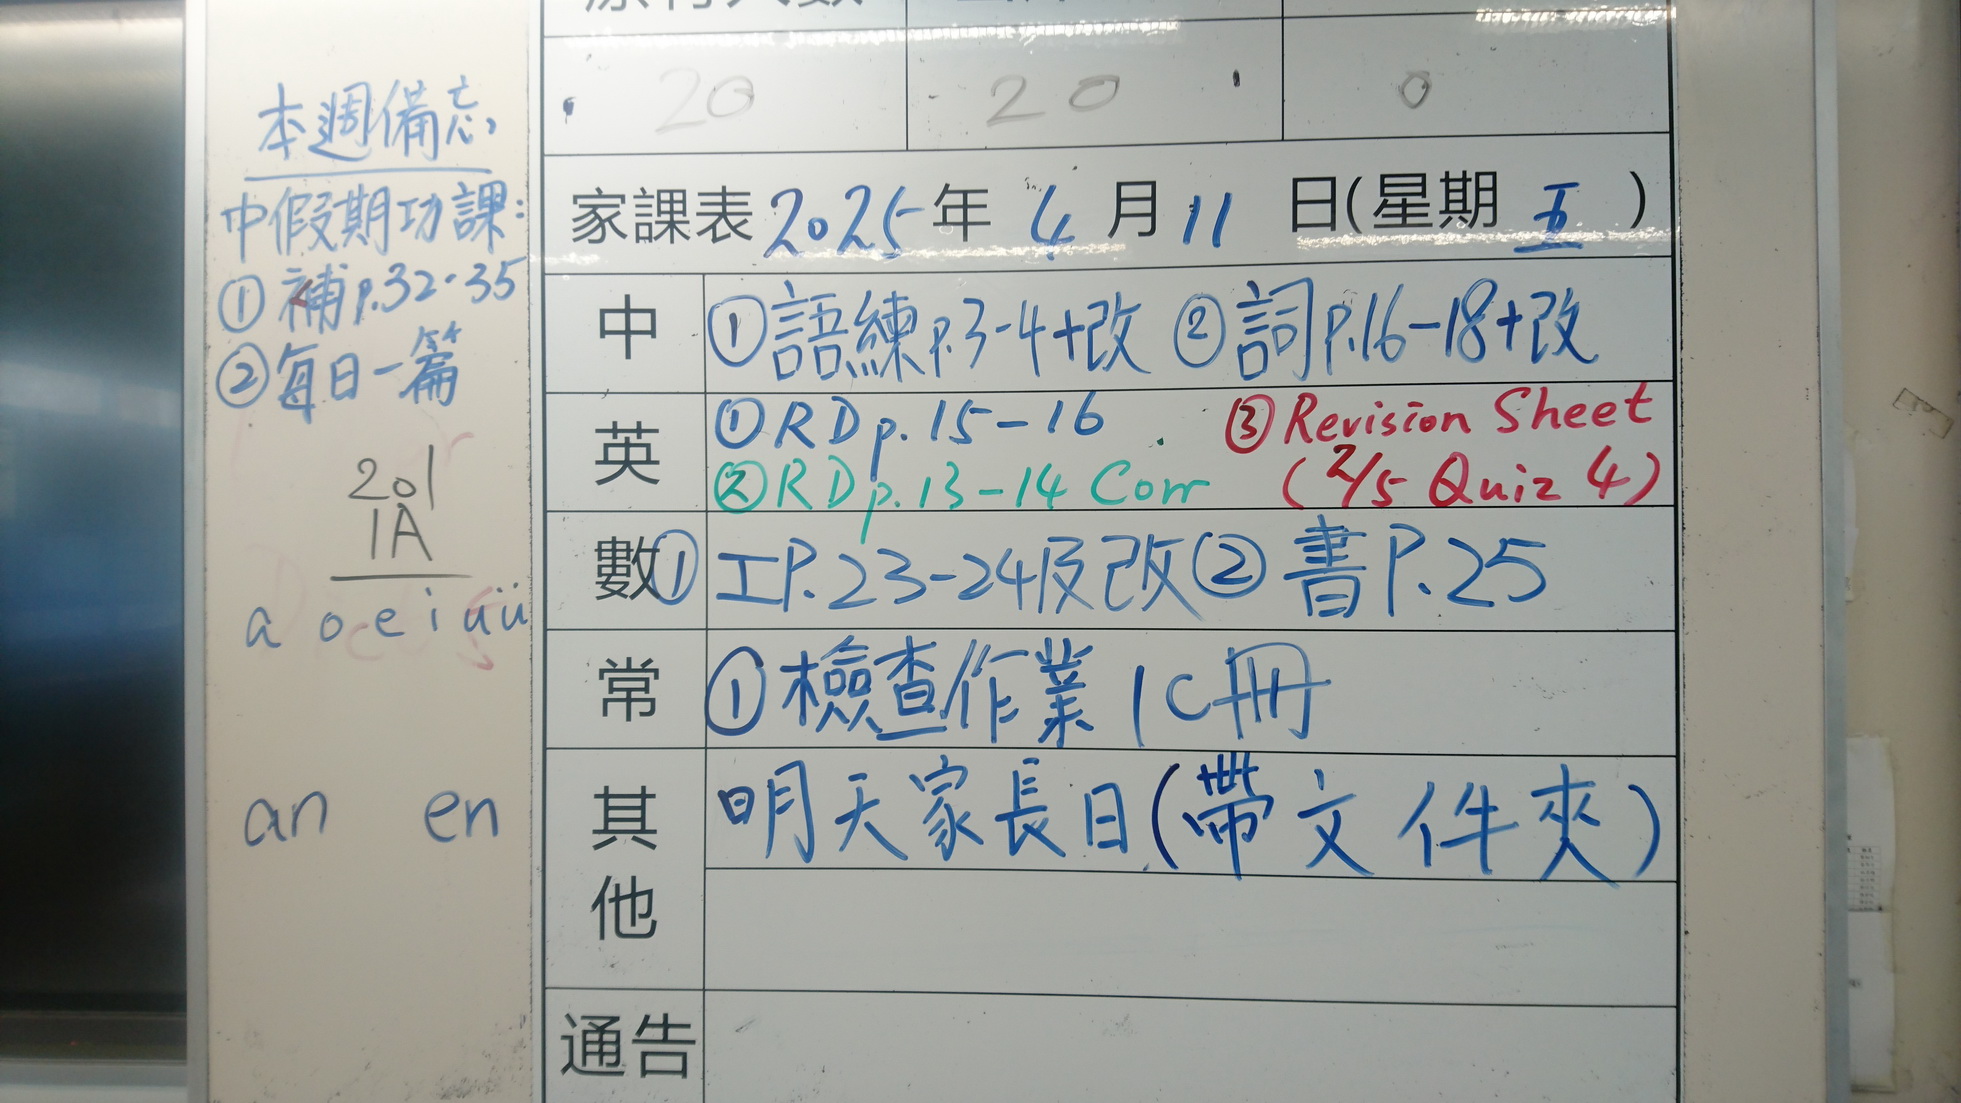 本週備忘
中假期功課：
① 補p.32-35
② 每日一篇
201
1A
a o e i u ü
an en
20 20 0
家課表 2025 年 4 月 11 日(星期 五 )
中 ①語練p.3-4+改 ②詞p.16-18+改
英 ①RD p.15-16 ③Revision Sheet
②RD p.13-14 Corr (2/5 Quiz 4)
數 ①工P.23-24及改②書P.25
常 ①檢查作業1C冊
其他 明天家長日(帶文件夾)
通告